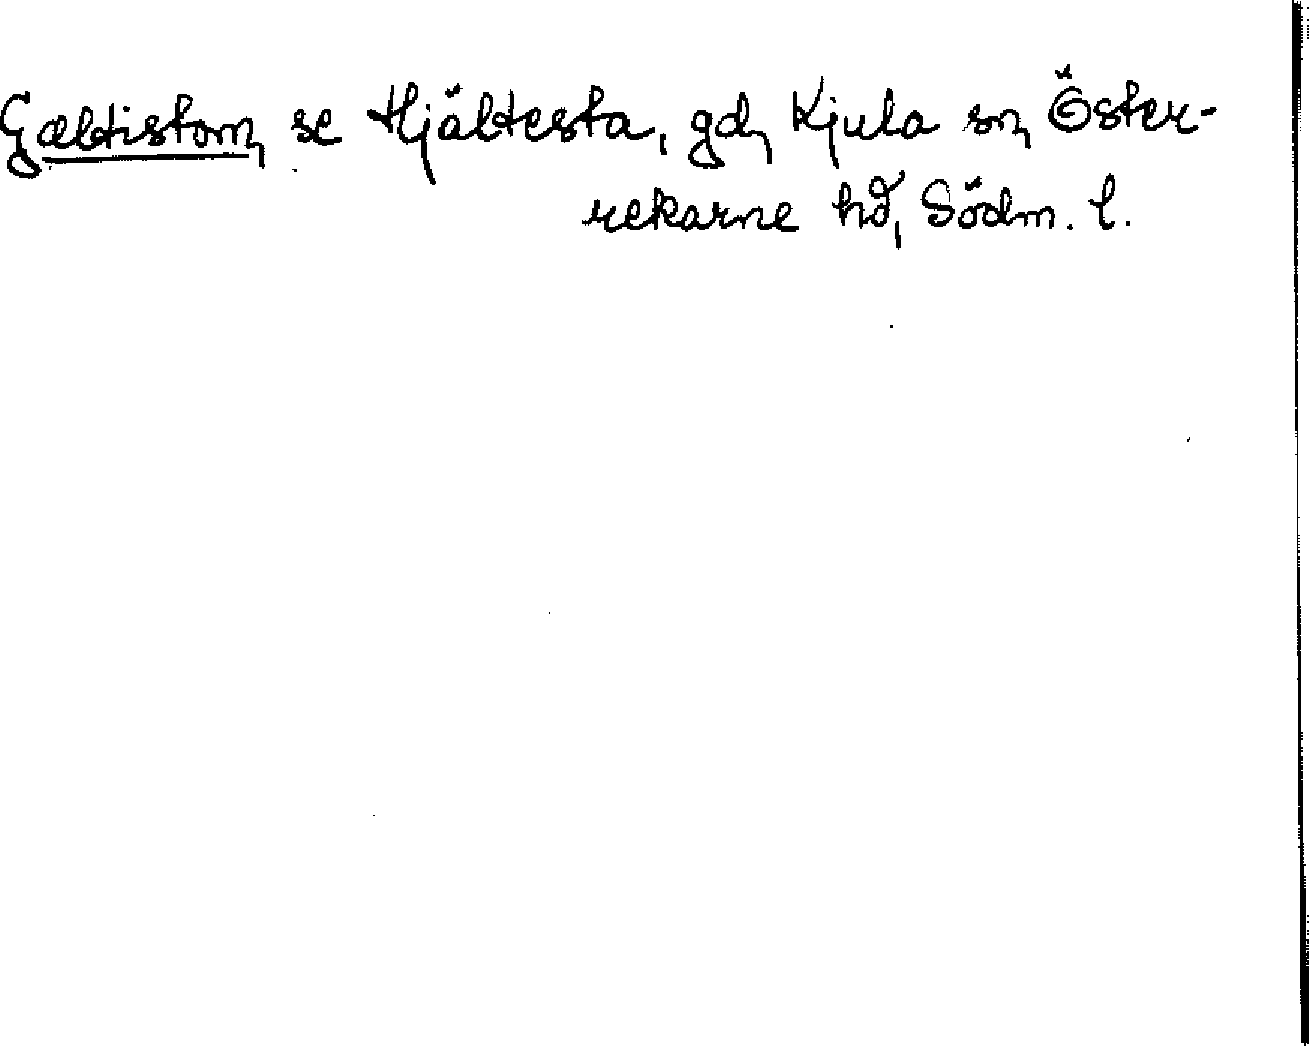 Gæltistom, se Hjältesta, gd, Kjula sn, Öster-
rekarne hd, Södm. l.